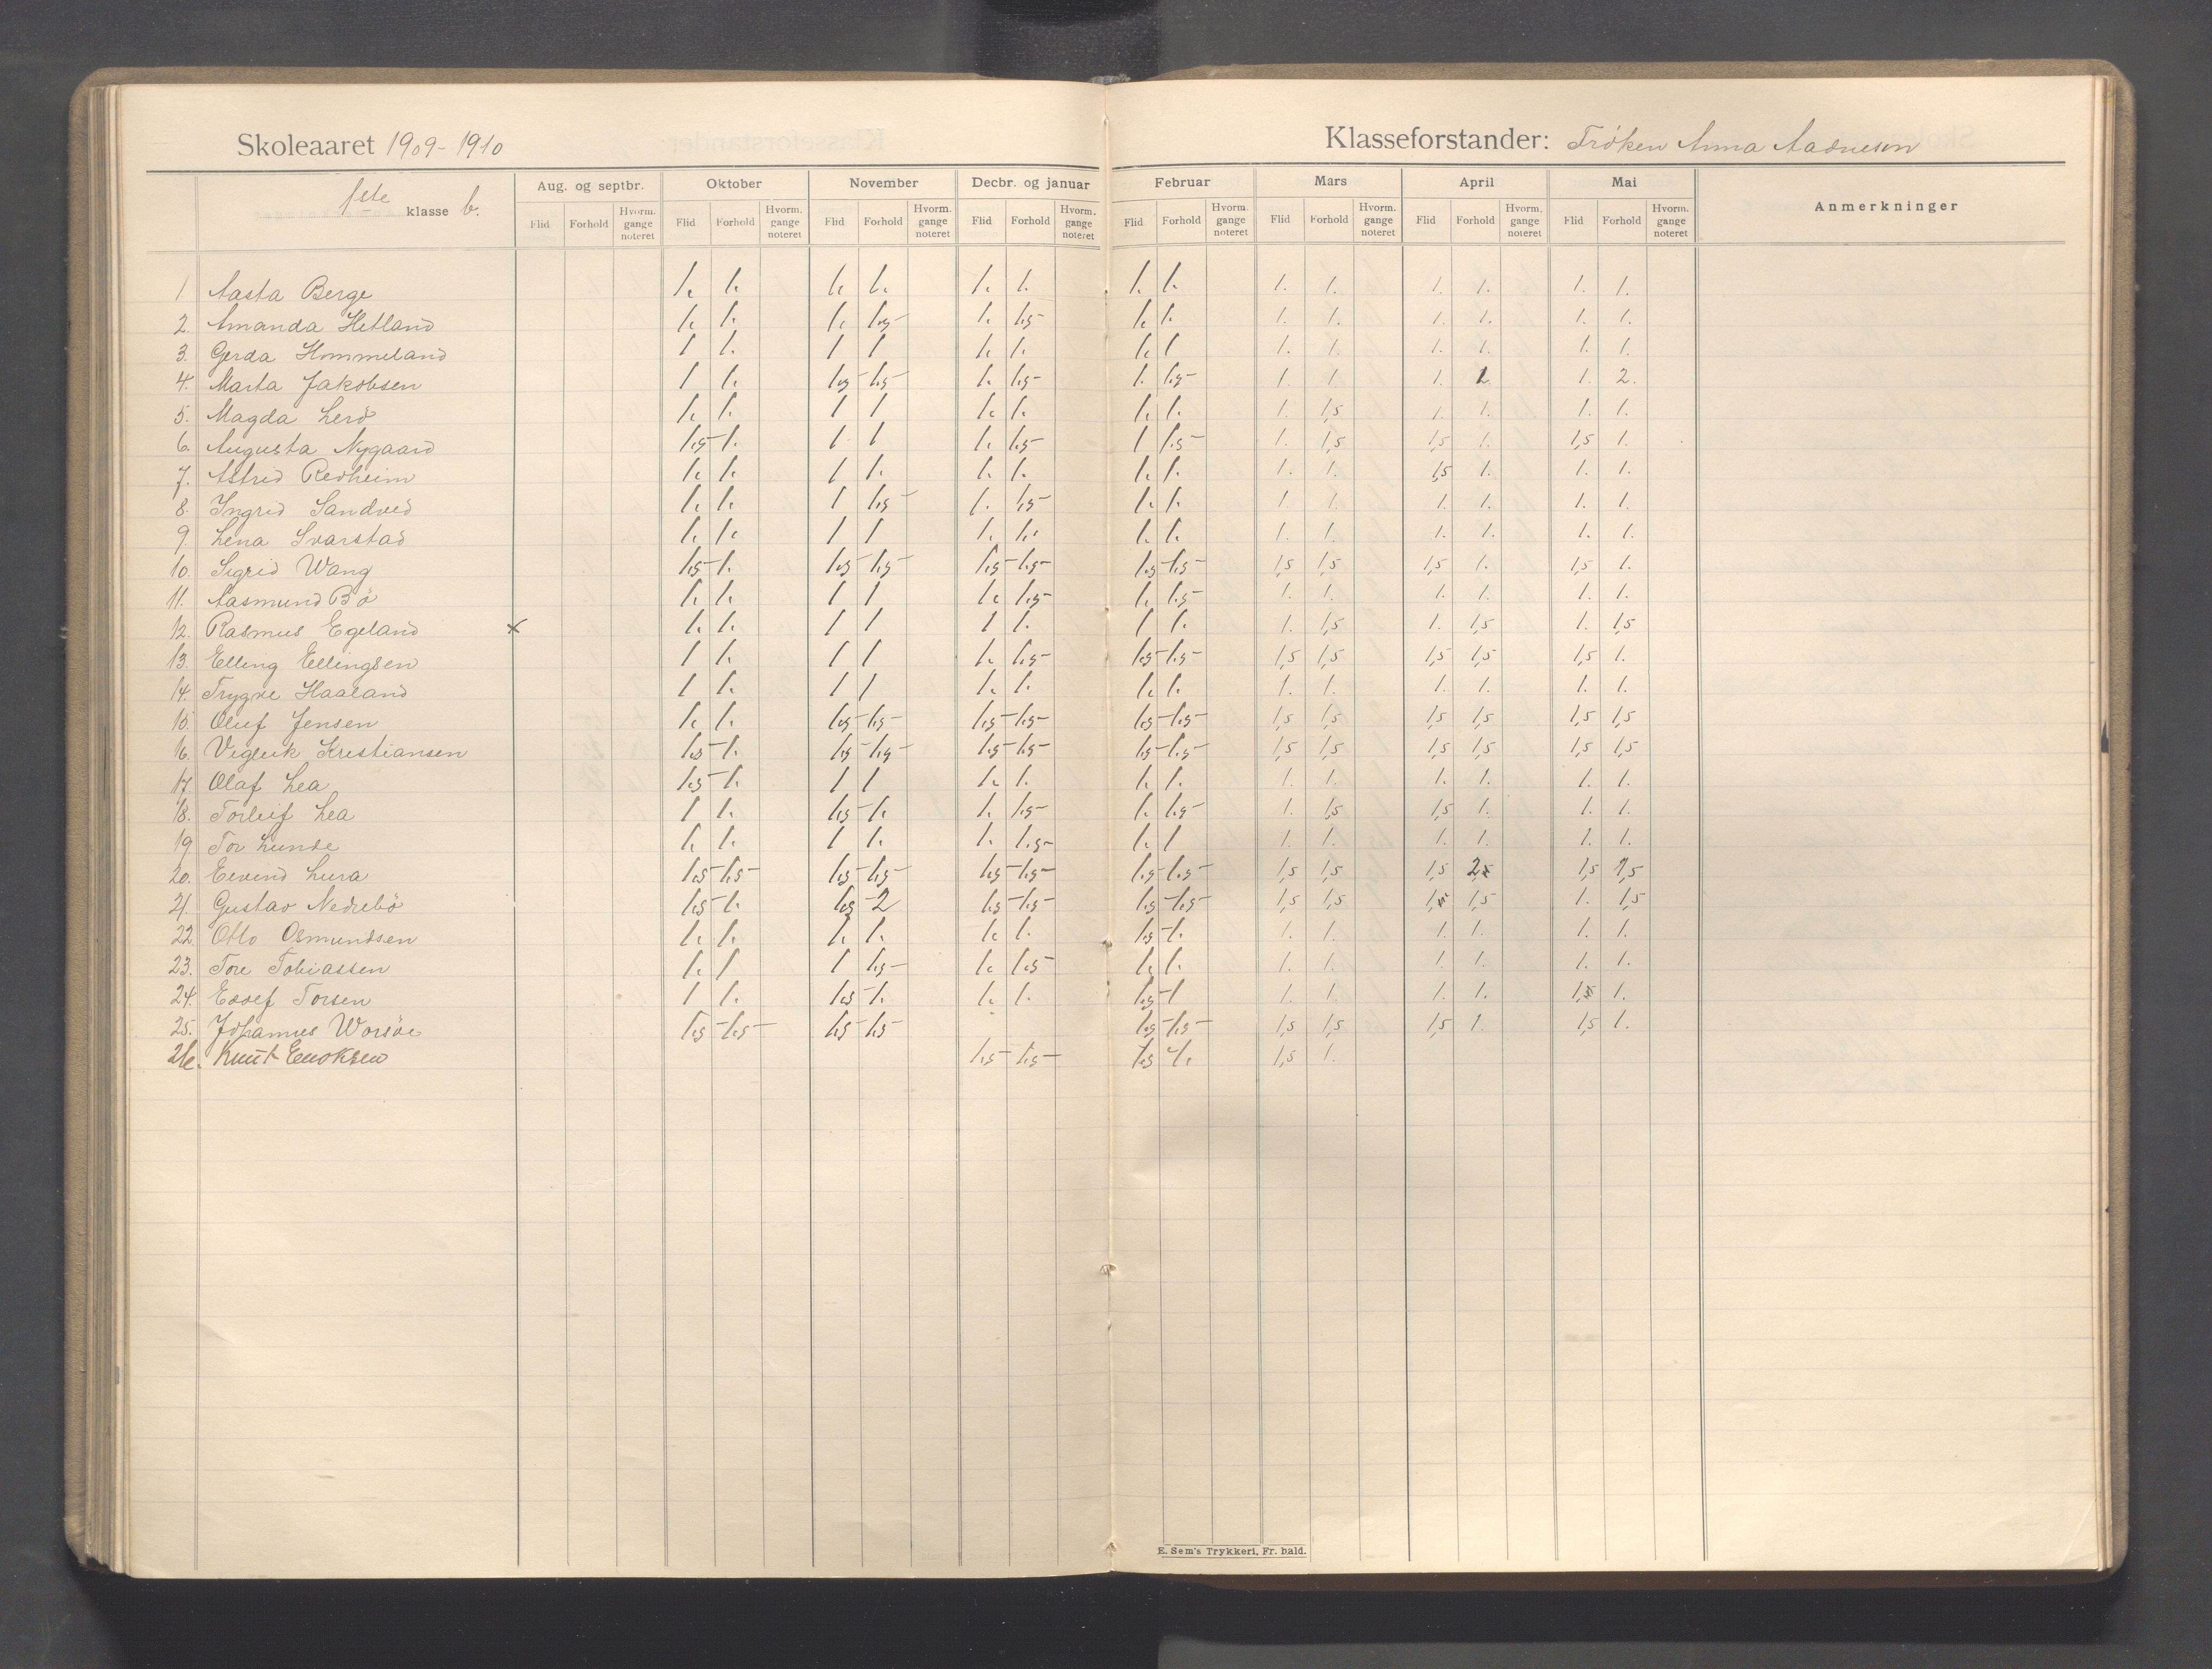 Skoleaaret 1909-1910
Klasseforstander: Frøken Anna Aadnesen
1ste klasse b.
Aug. og septbr. Oktober November Decbr. og januar Februar Mars April Mai Anmerkninger
Flid Forhold Hvorm. gange noteret Flid Forhold Hvorm. gange noteret Flid Forhold Hvorm. gange noteret Flid Forhold Hvorm. gange noteret Flid Forhold Hvorm. gange noteret Flid Forhold Hvorm. gange noteret Flid Forhold Hvorm. gange noteret Flid Forhold Hvorm. gange noteret
1 Aasta Berge 1. 1. 1. 1. 1. 1. 1. 1. 1. 1. 1. 1. 1. 1.
2. Amanda Hetland 1. 1. 1. 1,5 1. 1,5 1. 1. 1. 1. 1. 1. 1. 1.
3. Gerda Hommeland 1 1. 1 1 1. 1. 1. 1 1. 1. 1. 1. 1. 1.
4. Marta Jakobsen 1 1. 1,5 1,5 1. 1,5 1. 1,5 1. 1. 1. 2 1. 2.
5. Magda Lerö 1. 1. 1 1 1. 1. 1. 1. 1. 1,5 1. 1. 1. 1.
6. Augusta Nygaard 1,5 1. 1 1 1. 1,5 1 1,5 1. 1,5 1,5 1. 1,5 1.
7. Astrid Redheim 1. 1. 1 1. 1. 1. 1. 1. 1. 1. 1,5 1. 1. 1.
8. Ingrid Sandved 1. 1. 1 1,5 1. 1,5 1. 1. 1. 1. 1. 1. 1. 1.
9. Lena Svarstad 1. 1. 1 1 1. 1. 1. 1. 1. 1. 1. 1. 1. 1.
10. Sigrid Wang 1,5 1. 1,5 1,5 1,5 1,5 1,5 1,5 1,5 1,5 1,5 1. 1,5 1.
11. Aasmund Bö 1. 1. 1 1 1. 1,5 1. 1,5 1. 1. 1. 1. 1. 1.
12. Rasmus Egeland x 1. 1. 1 1 1 1. 1 1. 1. 1,5 1. 1,5 1. 1,5
13. Elling Ellingsen 1 1. 1 1 1. 1,5 1,5 1,5 1,5 1,5 1,5 1,5 1,5 1.
14. Trygve Haaland 1 1. 1 1 1. 1. 1. 1. 1. 1. 1. 1. 1. 1.
15. Oluf Jensen 1. 1. 1,5 1,5 1,5 1,5 1,5 1,5 1,5 1,5 1,5 1,5 1,5 1,5
16. Vigleik Kristiansen 1,5 1. 1,5 1,5 1,5 1,5 1,5 1,5 1,5 1,5 1,5 1,5 1,5 1,5
17. Olaf Lea 1,5 1. 1 1 1. 1. 1. 1. 1. 1. 1. 1. 1. 1.
18. Torleif Lea 1 1. 1,5 1. 1. 1,5 1. 1,5 1. 1,5 1,5 1. 1. 1.
19 Tor Lunde 1. 1. 1 1. 1. 1,5 1. 1 1. 1. 1. 1. 1. 1.
20. Eivind Lura 1,5 1,5 1,5 1,5 1,5 1,5 1,5 1,5 1,5 1,5 1,5 2 1,5 1,5
21. Gustav Nedrebö 1,5 1. 1,5 2 1,5 1,5 1,5 1,5 1,5 1,5 1, 1,5 1. 1,5
22 Otto Osmundsen 1. 1. 1. 1. 1. 1. 1,5 1. 1. 1. 1. 1. 1. 1.
23. Tore Tobiassen 1. 1 1 1,5 1. 1,5 1. 1. 1. 1. 1. 1. 1. 1.
24. Torsen 1 1. 1,5 1. 1. 1. 1,5 1 1. 1. 1. 1. 1, 1.
25. Johannes Worsöe 1,5 1,5 1,5 1,5 1,5 1,5 1,5 1,5 1,5 1. 1,5 1.
26. Knut Enoksen 1,5 1,5 1,5 1. 1,5 1.
E. Sem's Trykkeri, Fr.hald.